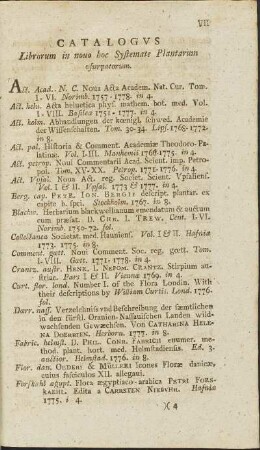 VII
CATALOGVS
Librorum in nouo hoc Systemate Plantarum
usurpatorum.
Act. Acad. N. C. Noua Acta Academ. Nat. Cur. Tom.
I-VI. Norimb. 1757-1778. in 4.
Act. helu. Acta helvetica phys. mathem. bot. med. Vol.
I-VIII. Basileæ 1751-1777. in 4.
Act. holm. Abhandlungen der königl. schwed. Academie
der Wissenschaften. Tom. 30-34. Lips. 1768-1772.
in 8.
Act. pal. Historia & Comment. Academiæ Theodoro-Pa-
latinæ. Vol. I-III. Manhemii 1766-1775. in 4.
Act. petrop. Noui Commentarii Acad. Scient. imp. Petro-
pol. Tom. XV-XX. Petrop. 1771-1776. in 4.
Act. Vpsal. Noua Act. reg. Societ. Scient. Vpsaliens.
Vol. I & II. Vpsal. 1773 & 1777. in 4.
Berg. cap. PETR. ION. BERGII descript. plantar. ex
capite b. spei. Stockholm. 1767. in 8.
Blackw. Herbarium blackwellianum emendatum & auctum
cum præfat. D. CHR. I. TREW. Cent. I-VI.
Norimb. 1750-72. fol.
Collectanea Societat. med. Hauniens. Vol. I & II. Hafniæ
1773. 1775. in 8.
Comment. gœtt. Noui Comment. Soc. reg. gœtt. Tom.
I-VIII. Gœtt. 1771-1778. in 4.
Crantz. austr. HENR. I. NEPOM. CRANTZ. Stirpium au-
striac. Fars I & II. Viennæ 1769. in 4.
Curt. flor. lond. Number I. of the Flora Londin. With
their descriptions by William Curtis. Lond. 1776.
fol.
Dœrr. nass. Verzeichnis und Beschreibung der sämtlichen
in den fürstl. Oranien-Nassauischen Landen wild-
wachsenden Gewächsen. VON CATHARINA HELE-
NA DOERRIEN. Herborn. 1777. in 8.
Fabric. helmst. D. PHIL. CONR. FABRICII enumer. me-
thod. plant. hort. med. Helmstadiensis. Ed. 3.
auctior. Helmstad. 1776. in 8.
Flor. dan. OEDERI & MÜLLERI Icones Floræ danicæ,
cuius fasciculos XII. allegaui.
Forskahl ægypt. Flora ægyptiaco-arabica PETRI FORS-
KAEHL. Edita a CARRSTEN NIEBVHR. Hafniæ
1775. in 4.
)( 4